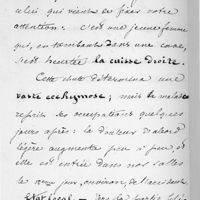 celui qui vient se fixer votre
attention : c'est une jeune femme
qui, en tombant dans une cave,
s'est heurtée la cuisse droite.
Cette chute détermina une
vaste ecchymose ; mais la malade
reprit ses occupations quelques
jours après : la douleur d'abord
légère augmenta peu à peu, et
elle est entrée dans nos salles
le jour, environ, de l'accident.
Etat local. — Sur la partie